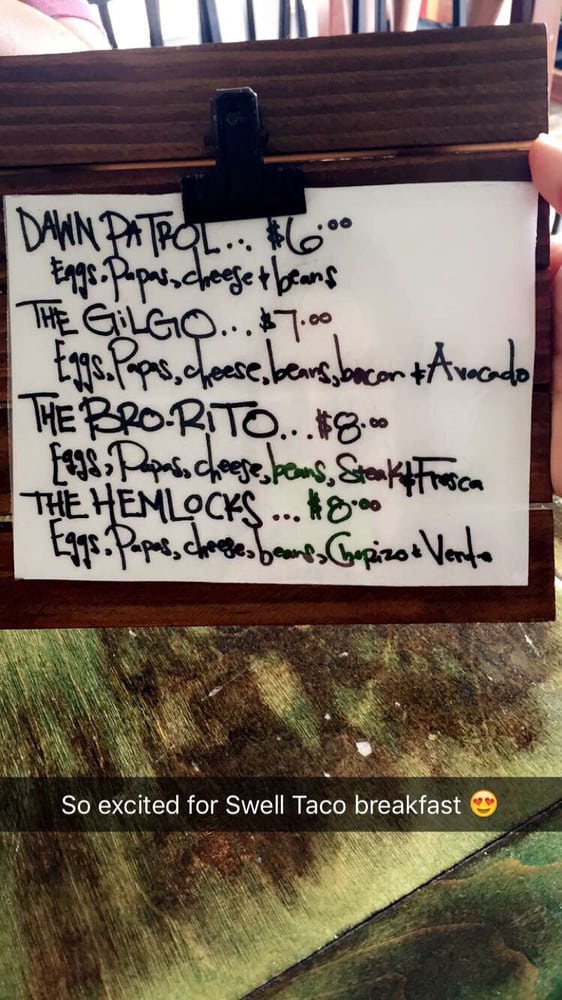 DAWN PATROL... $6.00
Eggs, Papas, cheese + beans
THE GiLGO... $7.00
Eggs, Papas, cheese, beans, bacon + Avocado
THE BRO-RiTO... $8.00
Eggs, Papas, cheese, beans, Steak + Fresca
THE HEMLOCKS... $8.00
Eggs, Papas, cheese, beans, Chorizo + Verde
So excited for Swell Taco breakfast 😍